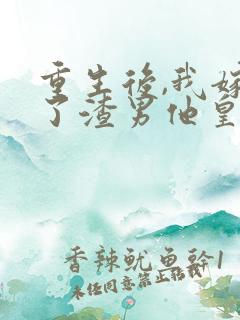 重生後,我嫁
了渣男他皇
香辣魷魚幹1
未任同意禁止转载